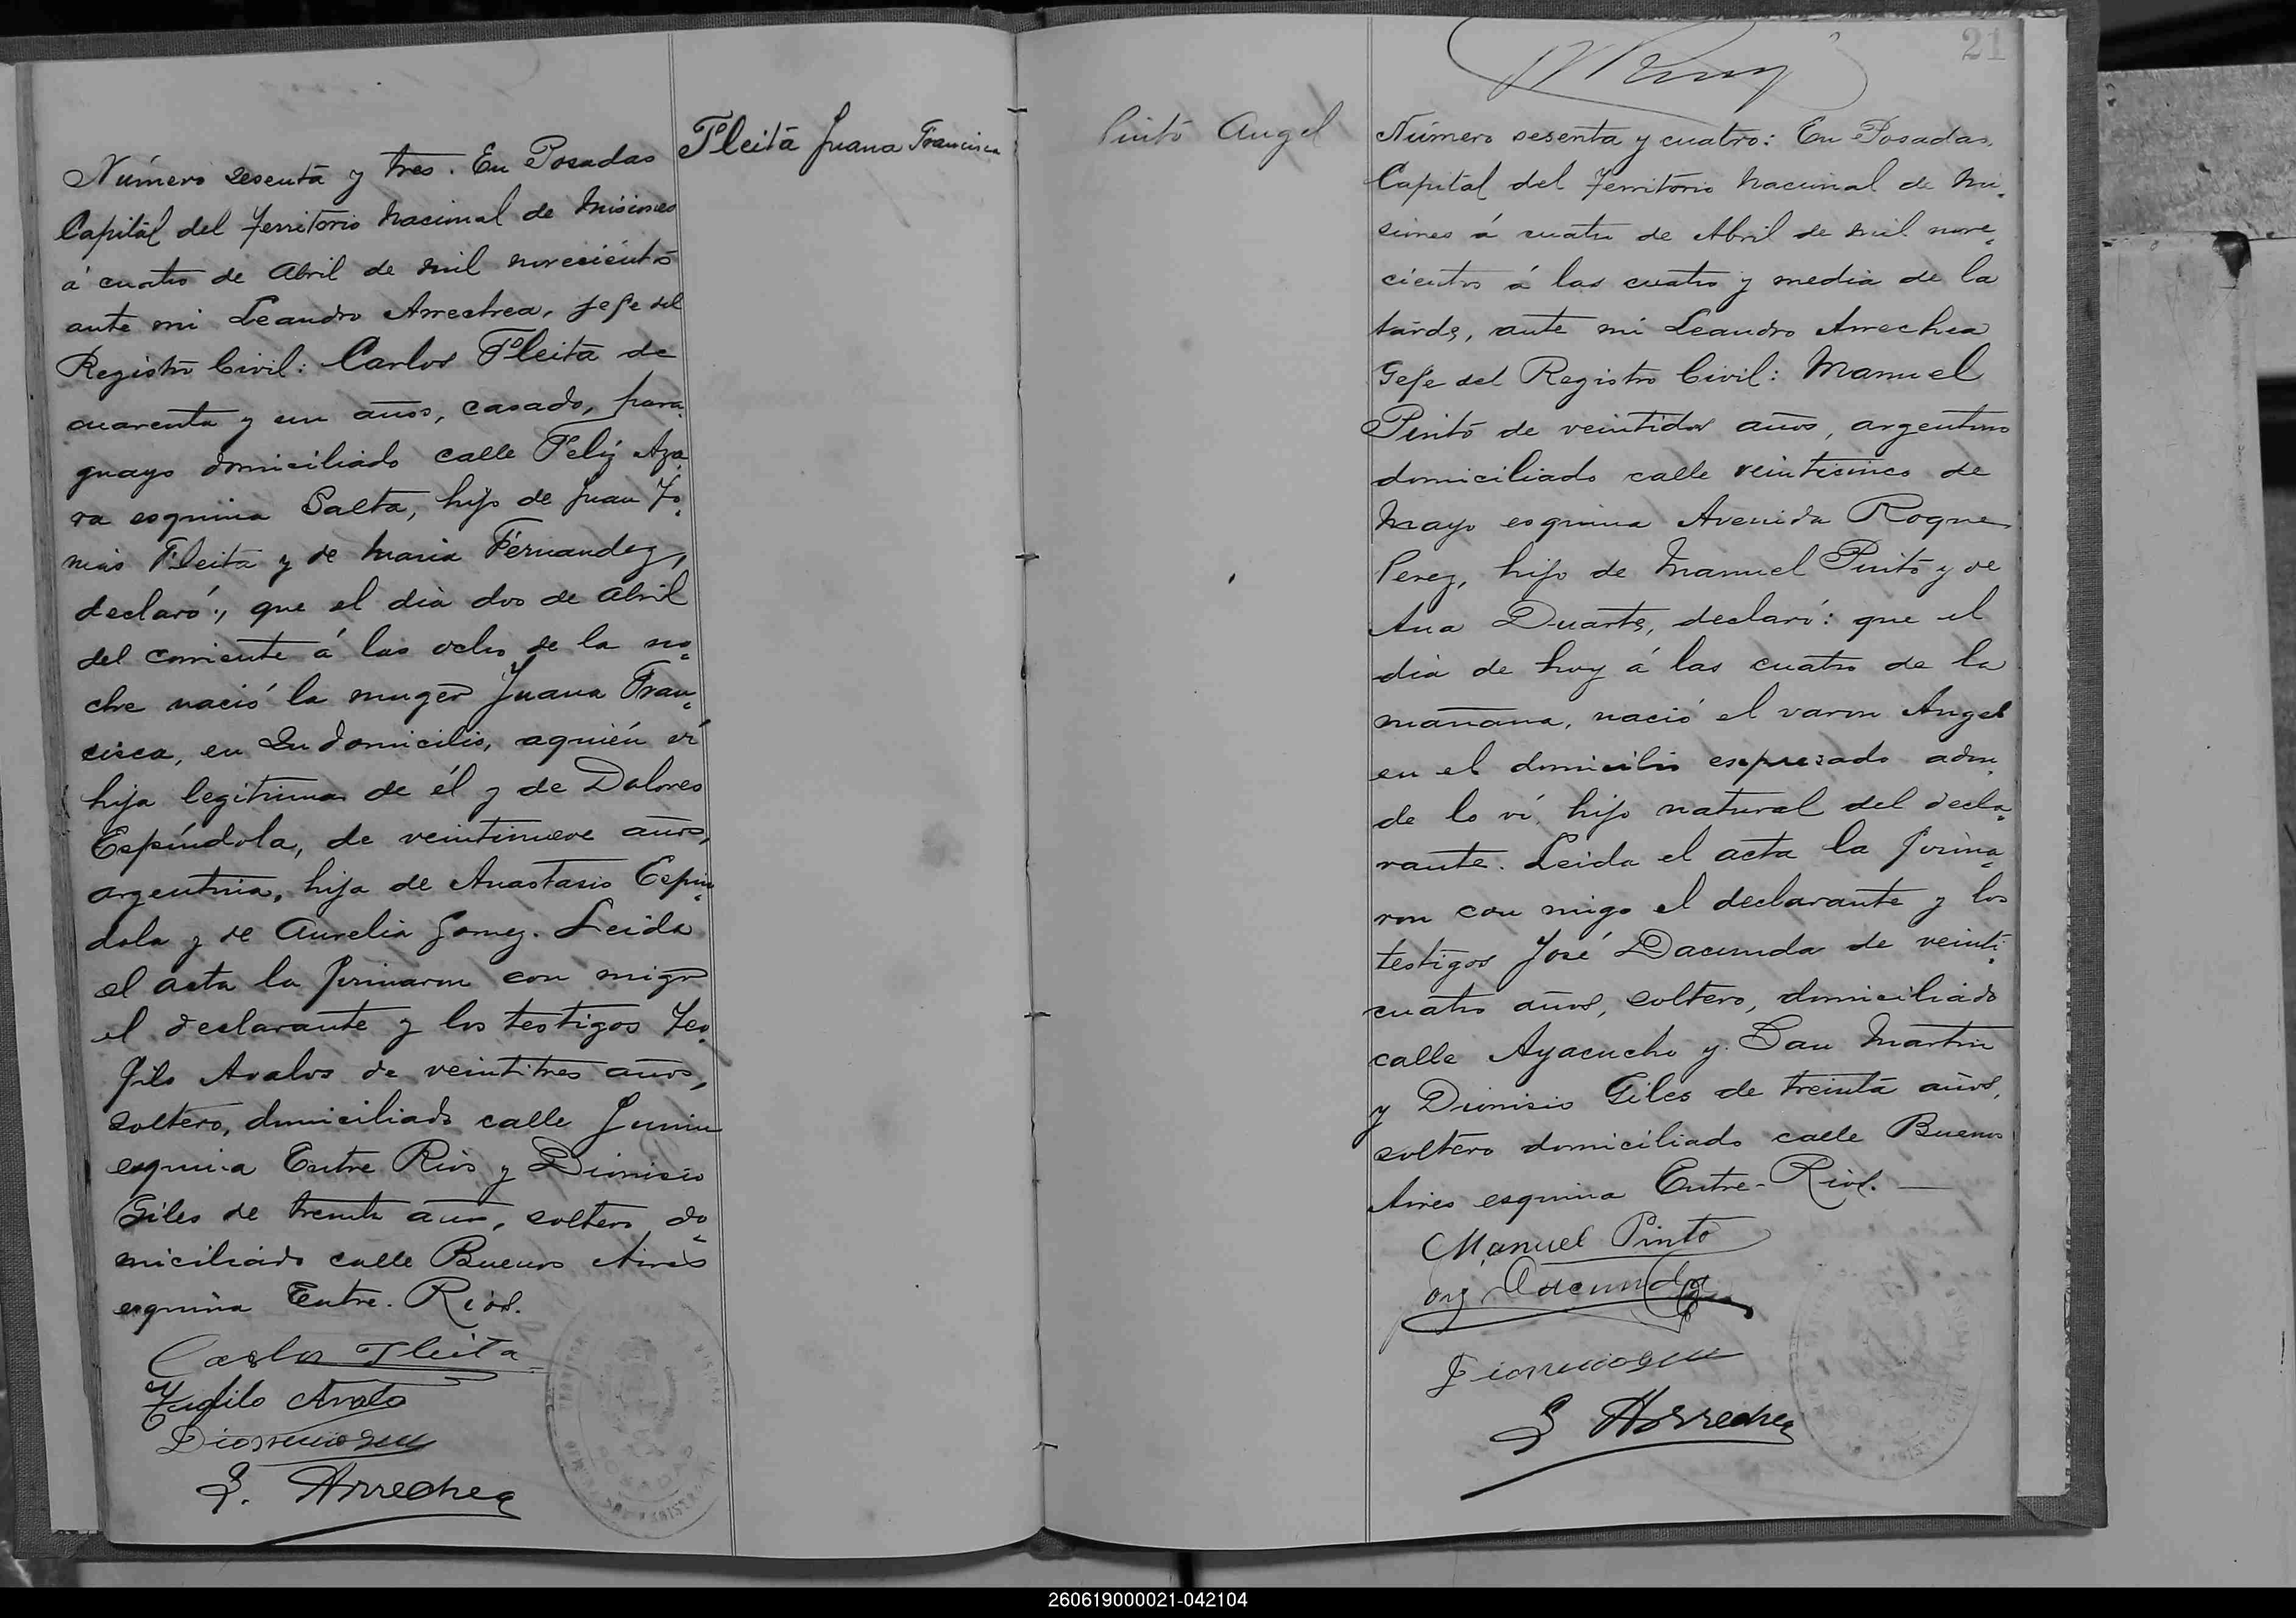 Fleita Juana Francisca
Número sesenta y tres. En Posadas
Capital del Territorio Nacional de Misiones
á cuatro de Abril de mil novecientos
ante mi Leandro Arrechea, Jefe del
Registro Civil: Carlos Fleita de
cuarenta y un años, casado, para-
guayo domiciliado calle Feliz Aza-
ra esquina Salta, hijo de Juan To-
más Fleita y de Maria Fernandez,
declaró:, que el dia dos de Abril
del corriente á las ocho de la no-
che nació la muger Juana Fran-
cisca, en su domicilio, aquién ví
hija legitima de él y de Dolores
Espíndola, de veintinueve años,
argentina, hija de Anastasio Espin-
dola y de Aurelia Gomez. Leida
el acta la firmaron con migo
el declarante y los testigos Teo-
filo Avalos de veintitres años,
soltero, domiciliado calle Junin
esquina Entre Rios y Dionisio
Giles de treinta años, soltero do-
miciliado calle Buenos Aires
esquina Entre-Rios.
Carlos Fleita
Teofilo Avalo
L. Arrechea
21
Pinto Angel
Número sesenta y cuatro: En Posadas,
Capital del Territorio Nacional de Mi-
siones á cuatro de Abril de mil nove-
cientos á las cuatro y media de la
tarde, ante mi Leandro Arrechea
Gefe del Registro Civil: Manuel
Pinto de veintidos años, argentino
domiciliado calle veinticinco de
Mayo esquina Avenida Roque
Perez, hijo de Manuel Pinto y de
Ana Duarte, declaró: que el
dia de hoy á las cuatro de la
mañana, nació el varon Angel
en el domicilio espresado adon-
de lo ví, hijo natural del decla-
rante. Leida el acta la firma-
ron con migo el declarante y los
testigos José Dacunda de veinti-
cuatro años, soltero, domiciliado
calle Ayacucho y San Martin
y Dionisio Giles de treinta años,
soltero domiciliado calle Buenos
Aires esquina Entre-Rios.
Manuel Pinto
Dacunda
L Arrechea
260619000021-042104